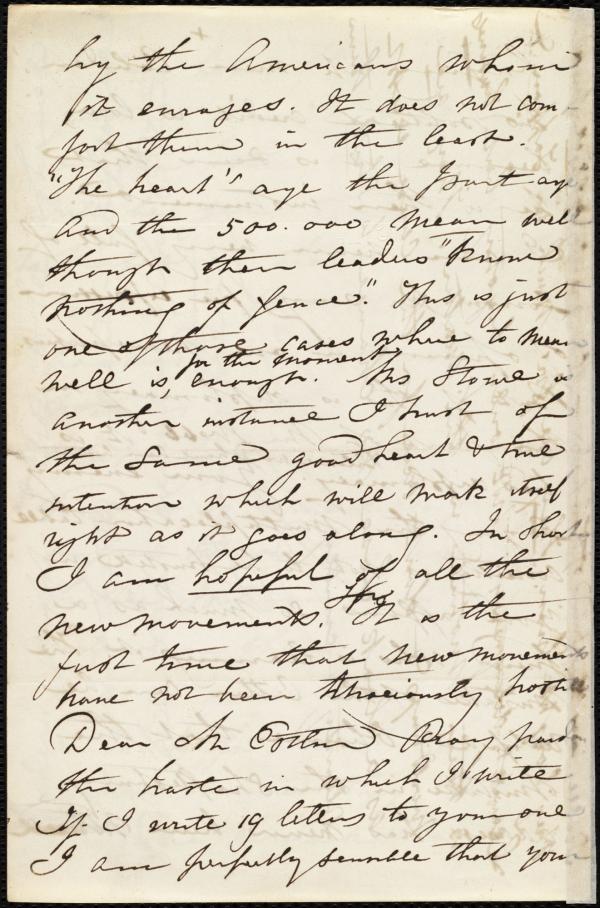 by the Americans whom
it enrages. It does not com-
fort them in the least.
"The heart's aye the part aye
And the 500.000 mean well
though their leaders "know
nothing of fence". This is just
one of those cases where to mean
well is, enough.
for the moment
Mrs Stowe is
another instance I trust of
the same good heart & true
intention which will work itself
right as it goes along. In short
I am hopeful of all the
new movements. For It is the
first time that new movements
have not been atrociously hostile
Dear Mr Estlin Pray pardon
the haste in which I write
If I write 19 letters to your one
I am perfectly sensible that your